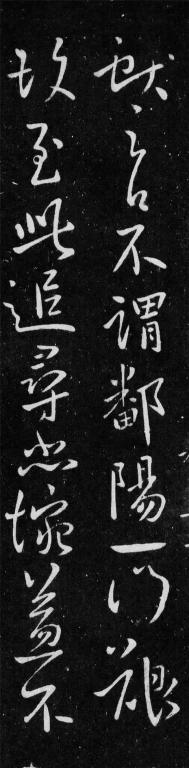 歎言不謂鄱陽一門艱
故至此追尋悲惋益不